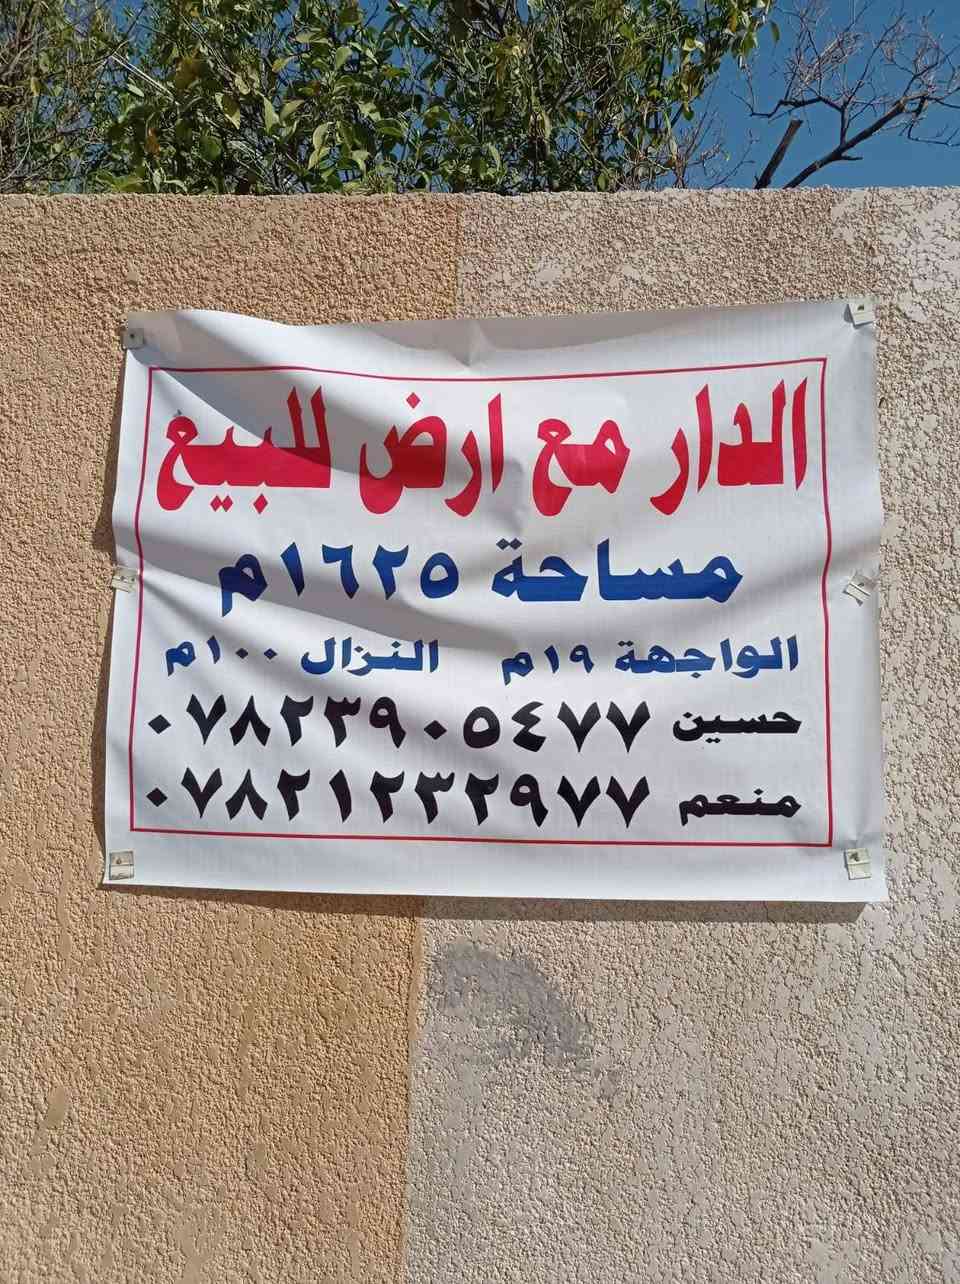 الدار مع ارض للبيع
مساحة ١٦٢٥م
الواجهة ١٩م النزال ١٠٠م
حسين ٠٧٨٢٣٩٠٥٤٧٧
منعم ٠٧٨٢١٢٣٢٩٧٧